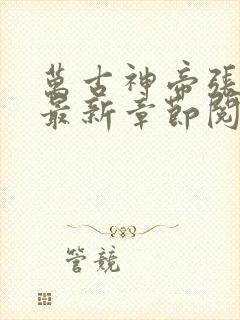 萬古神帝張
最新章節閱
管競